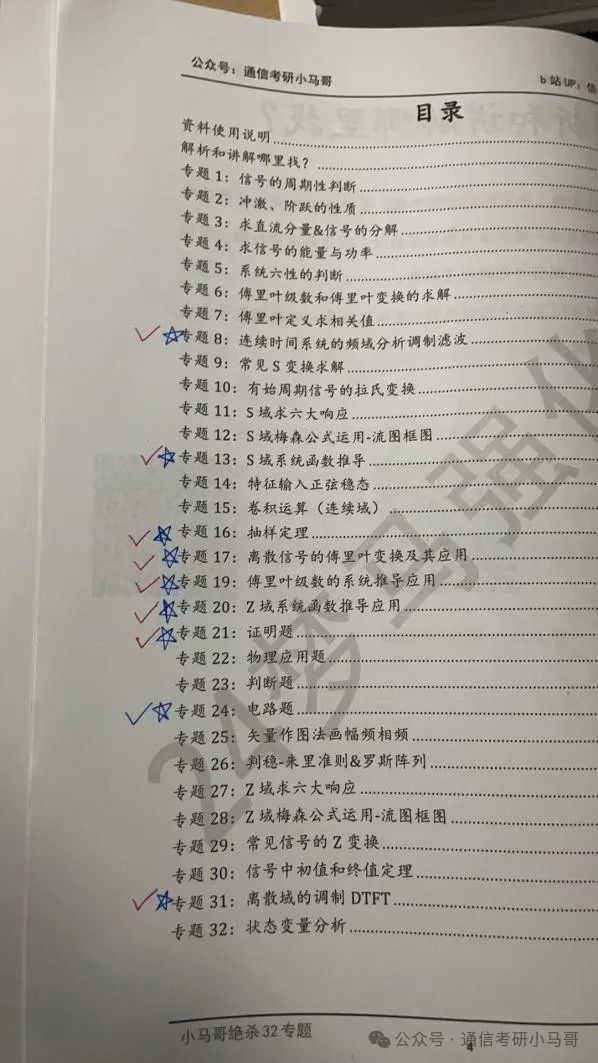 公众号：通信考研小马哥
b站UP：信
目录
资料使用说明
解析和讲解哪里找？
专题 1：信号的周期性判断
专题 2：冲激、阶跃的性质
专题 3：求直流分量&信号的分解
专题 4：求信号的能量与功率
专题 5：系统六性的判断
专题 6：傅里叶级数和傅里叶变换的求解
专题 7：傅里叶定义求相关值
专题 8：连续时间系统的频域分析调制滤波
专题 9：常见 S 变换求解
专题 10：有始周期信号的拉氏变换
专题 11：S 域求六大响应
专题 12：S 域梅森公式运用-流图框图
专题 13：S 域系统函数推导
专题 14：特征输入正弦稳态
专题 15：卷积运算（连续域）
专题 16：抽样定理
专题 17：离散信号的傅里叶变换及其应用
专题 19：傅里叶级数的系统推导应用
专题 20：Z 域系统函数推导应用
专题 21：证明题
专题 22：物理应用题
专题 23：判断题
专题 24：电路题
专题 25：矢量作图法画幅频相频
专题 26：判稳-朱里准则&罗斯阵列
专题 27：Z 域求六大响应
专题 28：Z 域梅森公式运用-流图框图
专题 29：常见信号的 Z 变换
专题 30：信号中初值和终值定理
专题 31：离散域的调制 DTFT
专题 32：状态变量分析
24梦马强化
小马哥绝杀 32 专题
4
公众号·通信考研小马哥